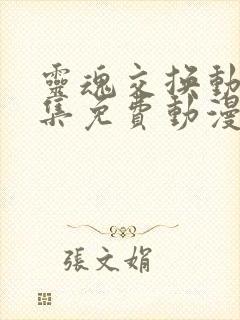 靈魂交換動
集免費動漫
張文娟